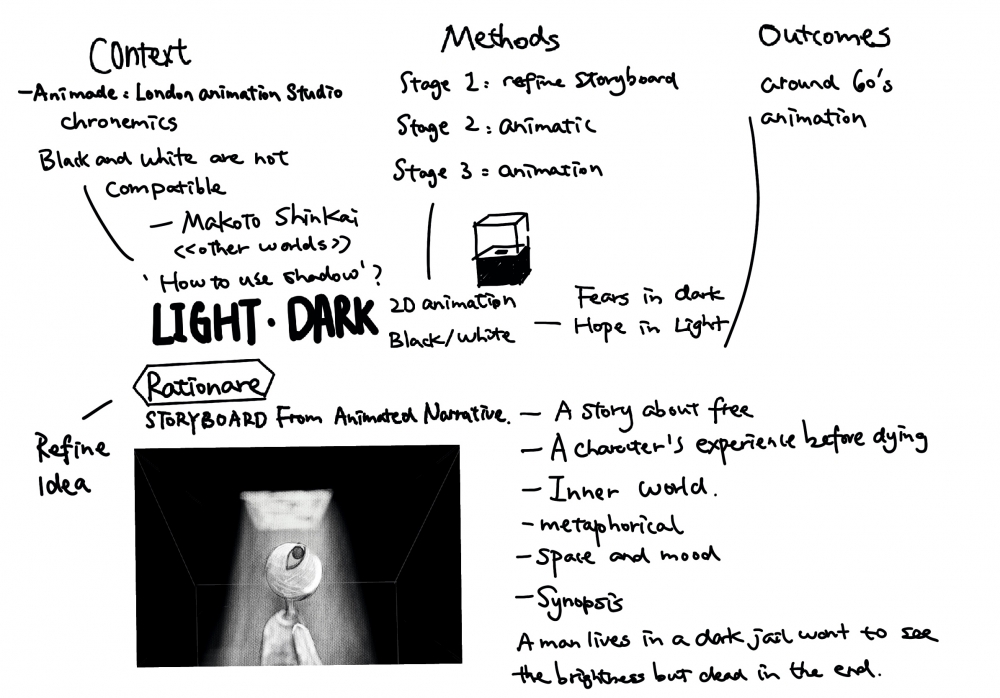 Context
-Animade: London animation Studio
chronemics
Black and white are not
compatible
- Makoto Shinkai
<<other worlds>>
'How to use shadow'?
LIGHT · DARK
Methods
Stage 1: refine storyboard
Stage 2: animatic
Stage 3: animation
2D animation
Black/White
- Fears in dark
Hope in Light
Outcomes
around 60's
animation
Rationare
STORYBOARD From Animated Narrative.
Refine
Idea
- A story about free
- A character's experience before dying
- Inner world.
- metaphorical
- space and mood
- Synopsis
A man lives in a dark jail want to see
the brightness but dead in the end.